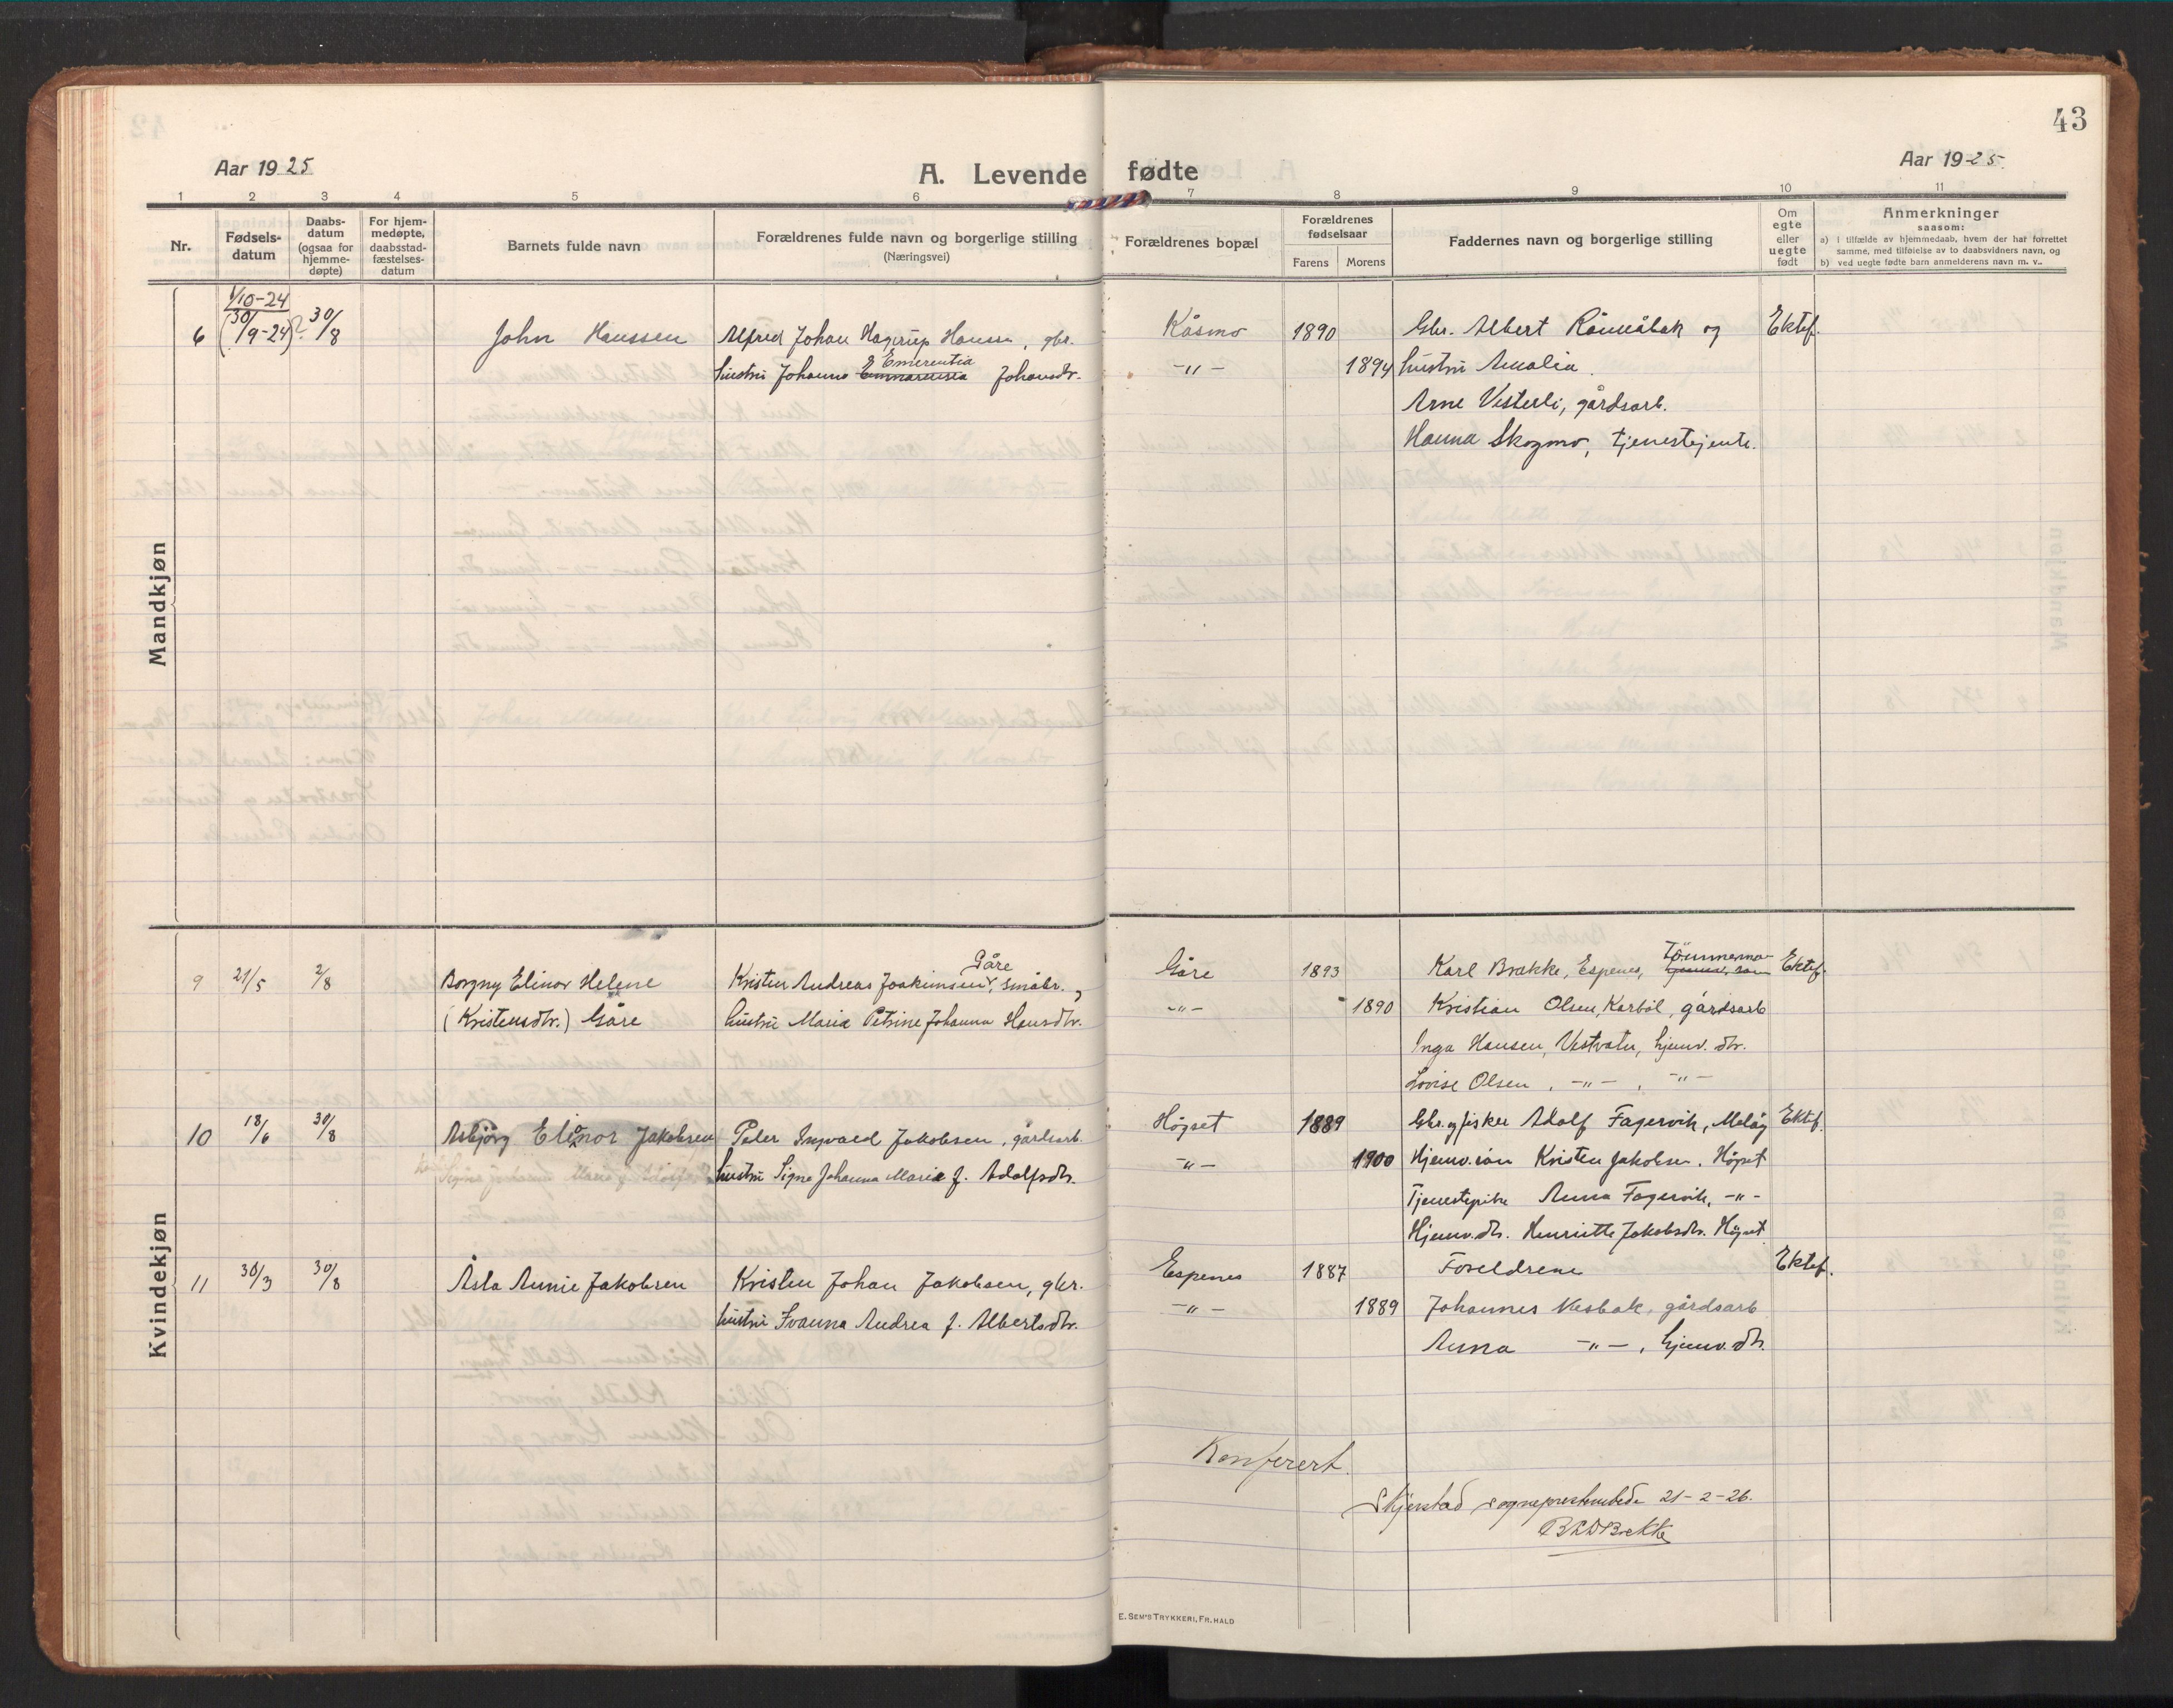 43
Aar 1925
A. Levende fødte
Aar 1925.
1 2 3 4 5 6 7 8 9 10 11
Nr.
Fødsels-
datum
Daabs-
datum
(ogsaa for
hjemme-
døpte)
For hjem-
medøpte,
daabsstad-
fæstelses-
datum
Barnets fulde navn
Forældrenes fulde navn og borgerlige stilling
(Næringsvei)
Forældrenes bopæl
Forældrenes
fødselsaar
Farens Morens
Faddernes navn og borgerlige stilling
Om
egte
eller
uegte
født
Anmerkninger
saasom:
a) i tilfælde av hjemmedaab, hvem der har forrettet
samme, med tilføielse av to daabsvidners navn, og
b) ved uegte fødte barn anmelderens navn m. v..
Mandkjøn
1/10-24
6 (30/9-24)? 30/8 John Hanssen Alfred Johan Hagerup Hanssen, gbr. Kåsmo 1890 Gbr. Albert Rånnåbak og Ektef.
Emerentia
hustru Johanna Johansdtr. -"- 1894 hustru Amalia.
Arne Vesterli, gårdsarb.
Hanna Skogmo, tjenestejente.
Kvindekjøn
Gåre Tömmerma
9 21/5 2/8 Borgny Elinor Helene Kristen Andreas Joakimsen, småbr., Gåre 1893 Karl Brække, Espenes, Ektef.
(Kristensdtr.) Gåre hustru Maria Petrine Johanna Hansdtr. -"- 1890 Kristian Olsen, Karbøl, gårdsarb
Inga Hansen, Vestvatn, hjemv. dtr.
Lovise Olsen, -"-, -"-
10 18/6 30/8 Asbjørg Elinor Jakobsen Peder Ingvald Jakobsen, gårdsarb. Högset 1889 Gbr. og fisker Adolf Fagervik, Meløy Ektef.
hustru Signe Johanna Marie f. Adolfsdtr. -"- 1900 Hjemv. sön Kristen Jakobsen, Högset
Tjenestepike Anna Fagervik, -"-
Hjemv. dtr. Henriette Jakobsdtr. Högset
11 30/3 30/8 Åsta Annie Jakobsen Kristen Johan Jakobsen, gbr. Espenes 1887 Foreldrene Ektef.
hustru Ivanna Andrea f. Albertsdtr. -"- 1889 Johannes Nesbak, gårdsarb
Anna -"-, hjemv. dtr.
Konferert.
Skjerstad sogneprestembede 21-2-26.
E. SEM'S TRYKKERI, FR.HALD